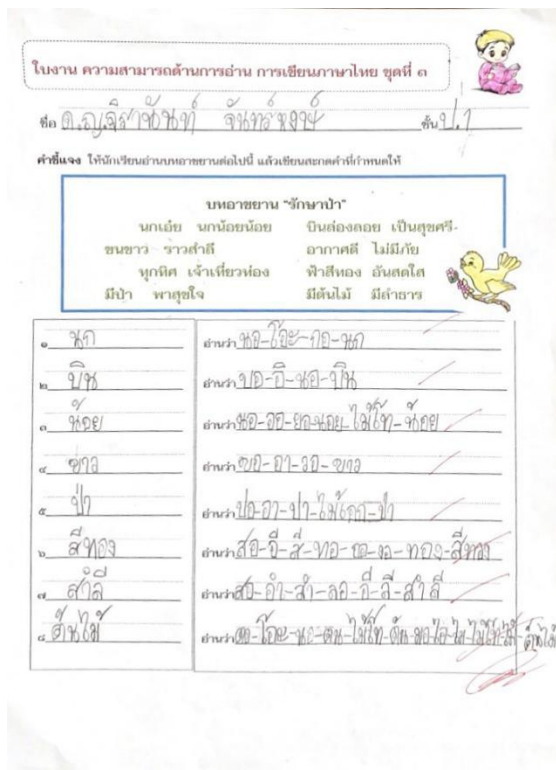 ใบงาน ความสามารถด้านการอ่าน การเขียนภาษาไทย ชุดที่ ๑
ชื่อ ด.ญ.จิรานันท์ จันทร์หงษ์ ชั้น ป.1
คำชี้แจง ให้นักเรียนอ่านบทอาขยานต่อไปนี้ แล้วเขียนสะกดคำที่กำหนดให้
บทอาขยาน "รักษาป่า"
นกเอ๋ย นกน้อยน้อย บินล่องลอย เป็นสุขศรี
ขนขาว ราวสำลี อากาศดี ไม่มีภัย
ทุกทิศ เจ้าเที่ยวท่อง ฟ้าสีทอง อันสดใส
มีป่า พาสุขใจ มีต้นไม้ มีลำธาร
๑ นก อ่านว่า นอ-โอะ-กอ-นก
๒ บิน อ่านว่า บอ-อิ-นอ-บิน
๓ น้อย อ่านว่า นอ-ออ-ยอ-นอย-ไม้โท-น้อย
๔ ขาว อ่านว่า ขอ-อา-วอ-ขาว
๕ ป่า อ่านว่า ปอ-อา-ปา-ไม้เอก-ป่า
๖ สีทอง อ่านว่า สอ-อี-สี-ทอ-ออ-งอ-ทอง-สีทอง
๗ สำลี อ่านว่า สอ-อำ-สำ-ลอ-อี-ลี-สำลี
๘ ต้นไม้ อ่านว่า ตอ-โอะ-นอ-ตน-ไม้โท-ต้น-มอ-ไอ-ไม-ไม้โท-ไม้-ต้นไม้